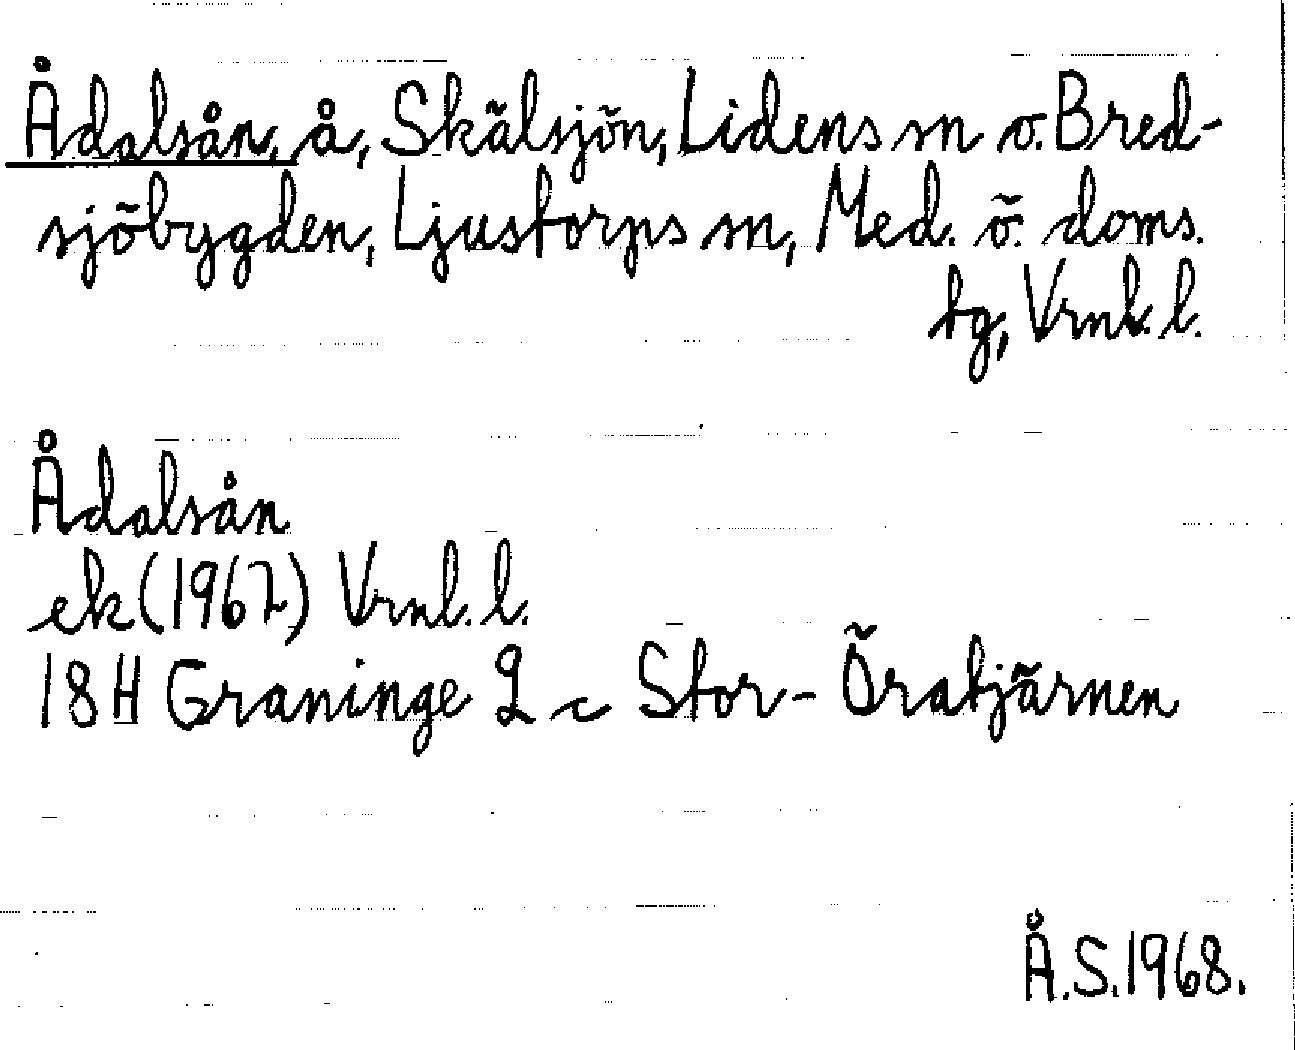 Ådalsån, å, Skälsjön, Lidens sn o. Bred-
sjöbygden, Ljustorps sn, Med. ö. doms.
tg, Vrnl. l.
Ådalsån
ek (1967) Vrnl. l.
18H Graninge 2 c Stor-Öratjärnen
Å.S. 1968.